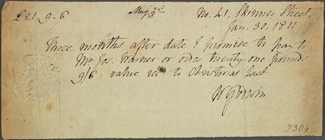 £21_9-6 May 3d No. 41, Skinner Street,
Jan. 30. 1811
Three months after date I promise to pay to
Mr Jos. Warner or order twenty one pounds
9/6: value recd to Christmas last
W Godwin